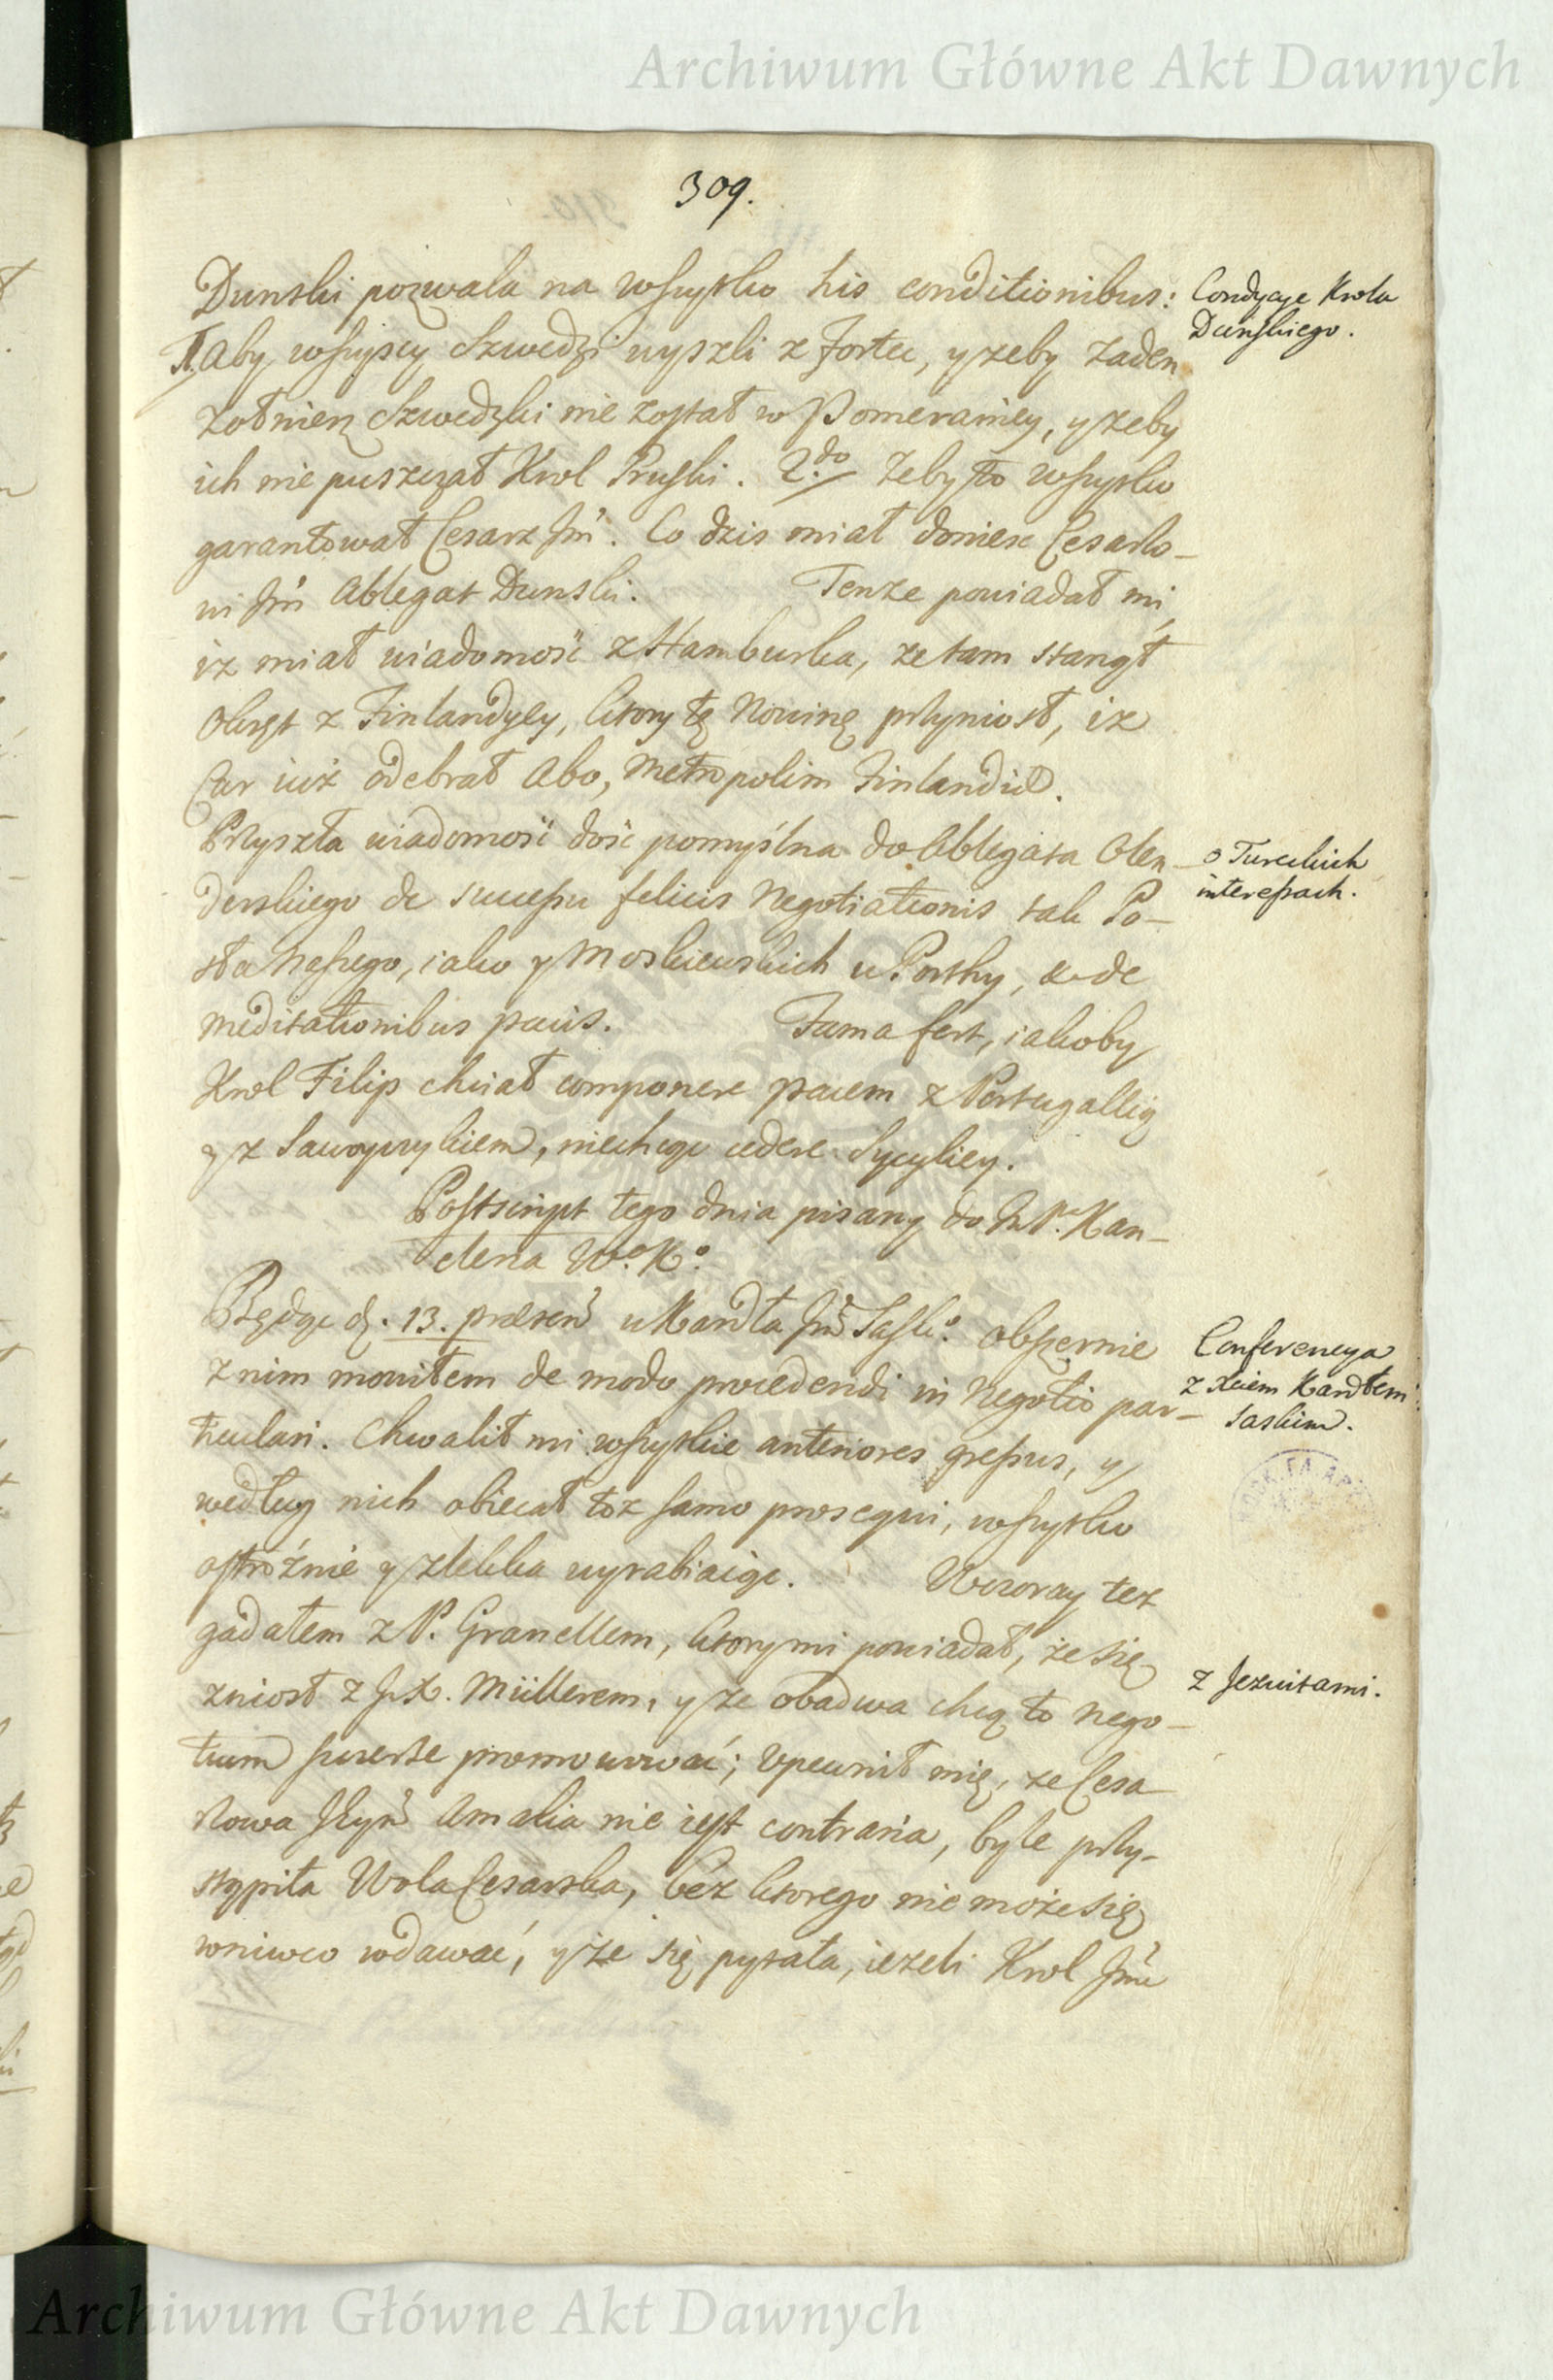 Archiwum Główne Akt Dawnych
309.
Dunski pozwala na wszystko his conditionibus:
1. Aby wszyscy Szwedzi wyszli z Fortec, y zeby zaden
Zołnierz Szwedzki nie został w Pomeraniey, y zeby
ich nie puszczał Krol Pruski. 2do Zeby to wszystko
garantował Cesarz Jm̃. Co dzis miał doniesc Cesarzo-
wi Jm̃ Ablegat Dunski. Tenze powiadał mi,
iz miał wiadomość z Hamburka, ze tam stanął
Okręt z Finlandyey, ktory tę Nowinę przyniosł, iz
Car iuż odebrał Abo, Metropolim Finlandiæ.
Przyszła wiadomość dość pomyślna do Ablegata Olen-
derskiego de successu felicis Negotiationis tak Po-
sła Naszego, iako y Moskiewskich u Porthy, & de
meditationibus pacis. Fama fert, iakoby
Krol Filip chciał componere pacem z Portugallią
y z Sawoyczykiem, niechcąc cedere Sycyliey.
Postscript tego dnia pisany do Kan-
clerza W.o K.o
Będąc d. 13. præsen̄ u Kardła Jm̃ Sasko. obszernie
z nim mowiłem de modo procedendi in Negotio par-
ticulari. Chwalił mi wszystkie anteriores gressus, y
według nich obiecał toz samo prosequi, wszystko
ostrożnie y zlekka wyrabiaiąc. Wczoray tez
gadałem z P. Granellem, ktory mi powiadał, że się
zniosł z Jx. Müllerem, y ze obadwa chcą to nego-
tium szczerze promowować; Upewnił mię, ze Cesa-
rzowa Jeym̃ Amalia nie iest contraria, byle przy-
stąpiła Wola Cesarska, bez ktorego nie może się
wniwco wdawać, y że się pytała, ieżeli Krol Jm̃
Condycye Krola
Dunskiego.
o Tureckich
interessach.
Conferencya
z Xciem Kardłem
Saskim.
z Jezuitami.
Archiwum Główne Akt Dawnych